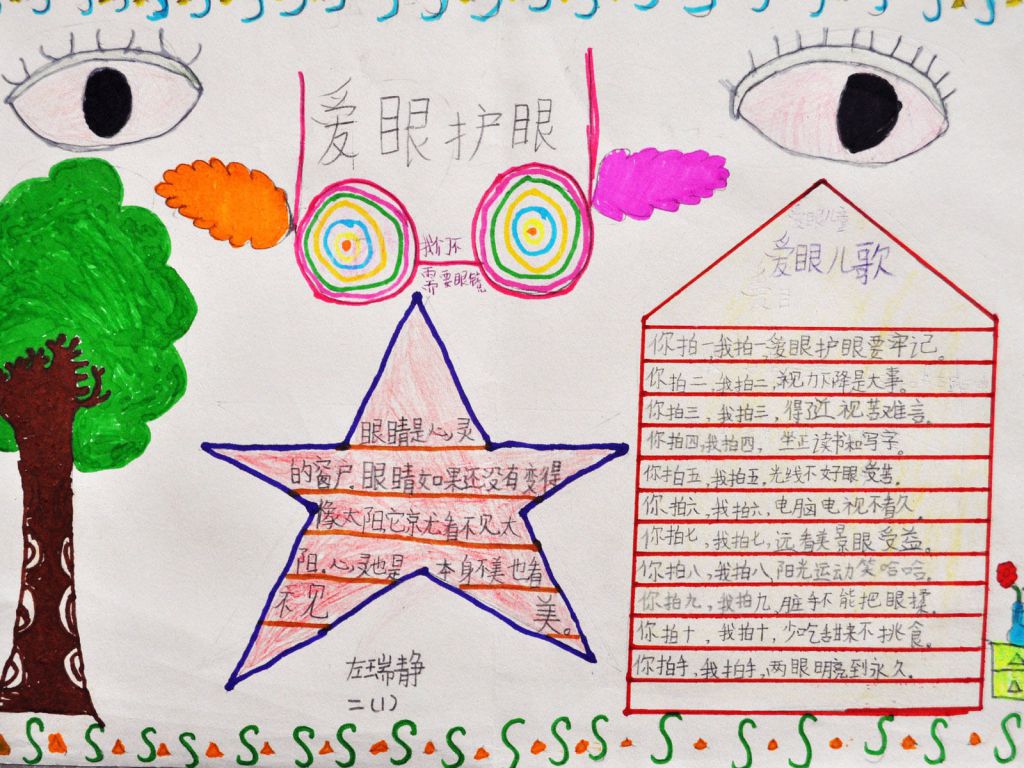 爱眼护眼
我们不
需要眼镜
眼睛是心灵
的窗户,眼睛如果还没有变得
像太阳,它京尤看不见太
阳,心灵也是 本身不美也看
不见 美。
左瑞静
二(1)
爱眼儿童
爱眼儿歌
你拍一,我拍一,爱眼护眼要牢记。
你拍二,我拍二,视力下降是大事。
你拍三,我拍三,得了近视苦难言。
你拍四,我拍四,坐正读书和写字。
你拍五,我拍五,光线不好眼受苦。
你拍六,我拍六,电脑电视不看久。
你拍七,我拍七,远看美景眼受益。
你拍八,我拍八,阳光运动笑哈哈。
你拍九,我拍九,脏手不能把眼揉。
你拍十,我拍十,少吃甜来不挑食。
你拍手,我拍手,两眼明亮到永久。